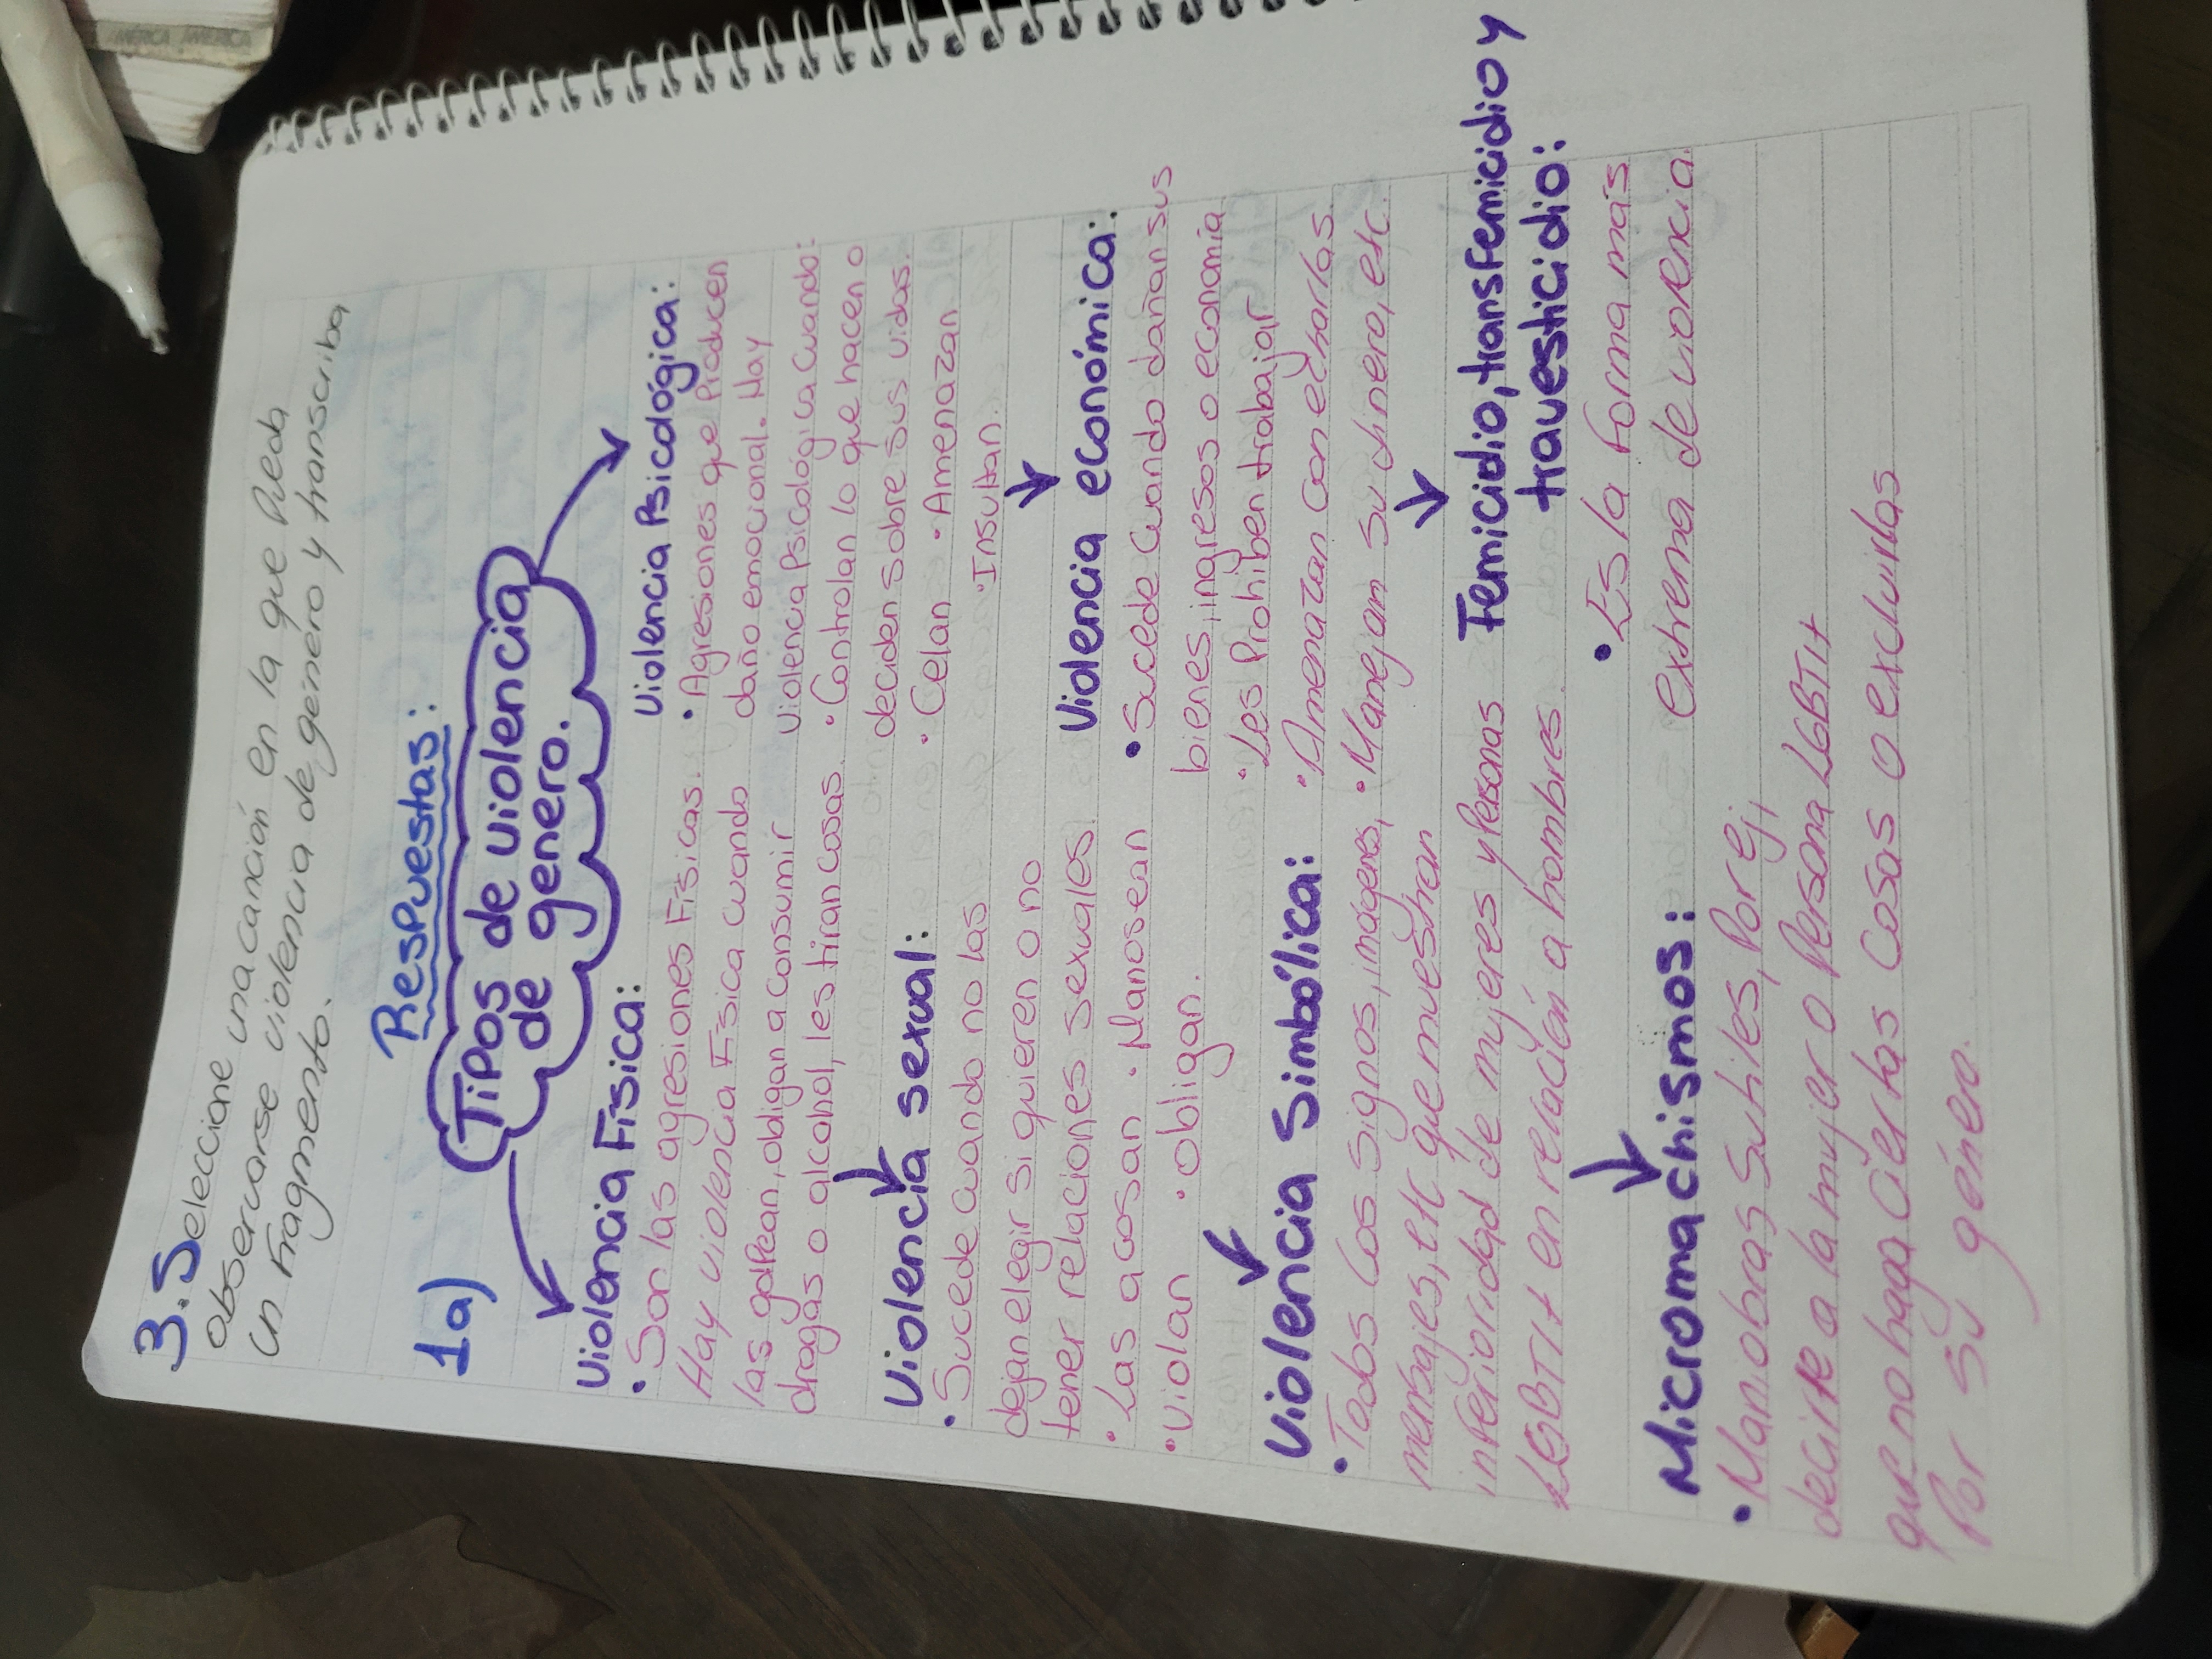 3. Seleccione una canción en la que Pueda
observarse violencia de género y transcriba
un Fragmento.
Respuestas:
1a)
Tipos de violencia
de genero.
Violencia Física:
• Son las agresiones Físicas.
Hay violencia Física cuando
las golpean, obligan a consumir
drogas o alcohol, les tiran cosas.
Violencia sexual:
• Sucede cuando no las
dejan elegir si quieren o no
tener relaciones sexuales
• Las acosan • Manosean
• violan • obligan.
Violencia Simbólica:
• Todos los signos, imágenes,
mensajes, etc que muestran
inferioridad de mujeres y Personas
LGBTI+ en relación a hombres.
Micromachismos:
• Maniobras sutiles, Por ej,
decirle a la mujer o Persona LGBTI+
que no haga ciertas cosas o excluirlas
Por su género.
Violencia Psicológica:
• Agresiones que Producen
daño emocional. Hay
violencia Psicológica cuando:
• Controlan lo que hacen o
deciden sobre sus vidas.
• Celan • Amenazan
• Insultan.
Violencia económica:
• Sucede cuando dañan sus
bienes, ingresos o economía
• Les Prohiben trabajar
• Amenazan con echarlas.
• Manejan su dinero, etc.
Femicidio, transfemicidio y
travesticidio:
• Es la Forma más
extrema de violencia.
AMÉRICA AMÉRICA